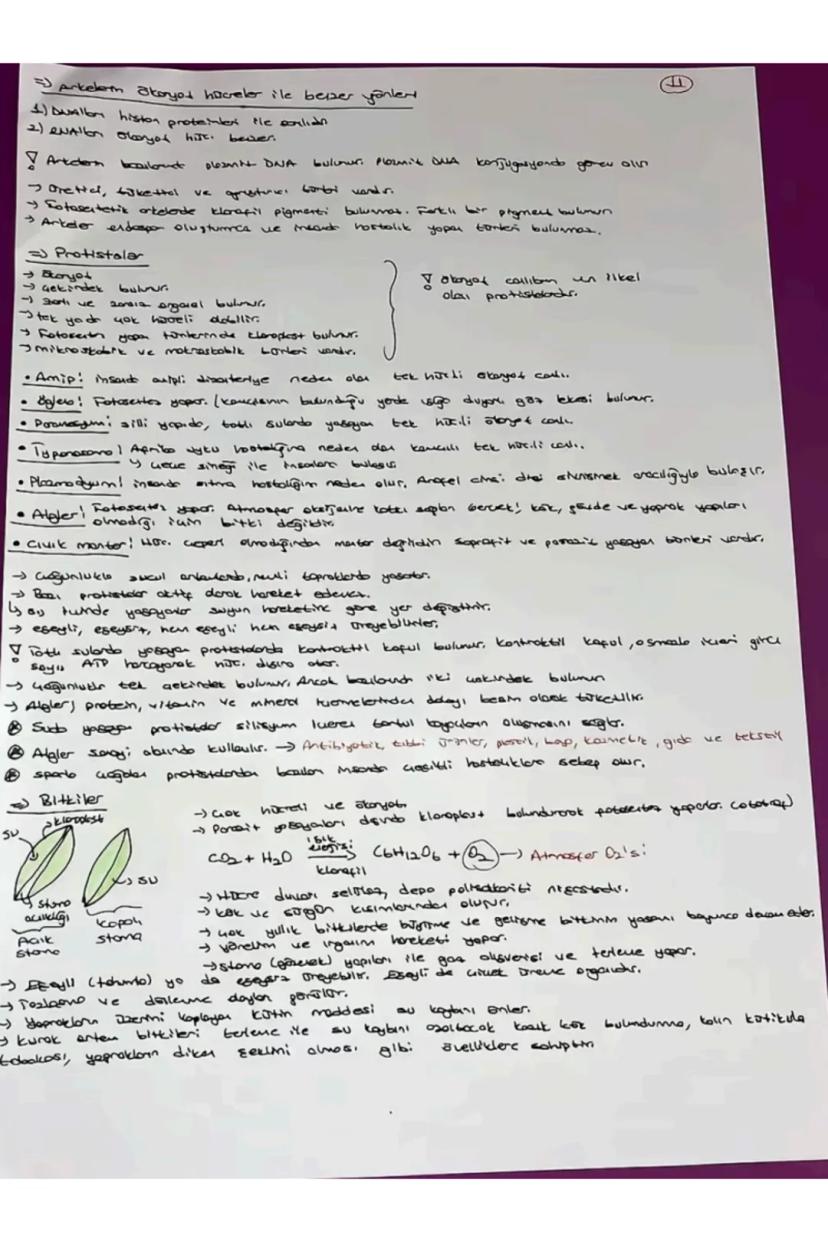 11
⇒ Arkelerin Ökaryot hücreler ile benzer yönleri
1) DNA'ları histon proteinleri ile sarılıdır.
2) RNA'ları ökaryot hüc. benzer.
! Arkelerin bazılarında plazmit DNA bulunur. Plazmit DNA konjugasyonda görev alır
→ Üretici, tüketici ve ayrıştırıcı türleri vardır.
→ Fotosentetik arkelerde klorofil pigmenti bulunmaz. Farklı bir pigment bulunur
→ Arkeler endospor oluşturmaz ve insanda hastalık yapan türleri bulunmaz.
⇒ Protistalar
→ Ökaryot
→ Çekirdek bulunur.
→ zarlı ve zarsız organel bulunur.
→ tek ya da çok hücreli olabilir.
→ Fotosentez yapan türlerinde kloroplast bulunur.
→ mikroskobik ve makroskobik türleri vardır.
! Ökaryot canlıların en ilkel
olanı protistalardır.
• Amip: insanda amipli dizanteriye neden olan tek hücreli ökaryot canlı.
• Öglena: Fotosentez yapar. (kamçısının bulunduğu yerde ışığa duyarlı göz lekesi bulunur.
• Paramesyum: silli yapıda, tatlı sularda yaşayan tek hücreli ökaryot canlı.
• Typanosoma: Afrika uyku hastalığına neden olan kamçılı tek hücreli canlı.
↳ çeçe sineği ile insanlara bulaşır
• Plazmodyum: insanda sıtma hastalığına neden olur. Anofel cinsi dişi sivrisinek aracılığıyla bulaşır.
• Algler: Fotosentez yapar. Atmosfer oksijenine katkı sağlar. Gerçek kök, gövde ve yaprak yapıları
olmadığı için bitki değildir.
• Cıvık mantar: Hüc. çeperi olmadığından mantar değildir. Saprofit ve parazit yaşayan türleri vardır.
→ Çoğunlukla sucul ortamlarda, nemli topraklarda yaşarlar.
→ Bazı protistalar aktif olarak hareket edemez.
↳ su içinde yaşayanlar suyun hareketine göre yer değiştirir.
→ eşeyli, eşeysiz, hem eşeyli hem eşeysiz üreyebilirler.
! Tatlı sularda yaşayan protistalarda kontraktil koful bulunur. Kontraktil koful, osmozla içeri giren
suyu ATP harcayarak hüc. dışına atar.
→ Çoğunlukla tek çekirdek bulunur. Ancak bazılarında iki çekirdek bulunur
→ Algler; protein, vitamin ve mineral içermelerinden dolayı besin olarak tüketilir.
⊛ Suda yaşayan protistalar silisyum içeren tortul kayaçların oluşmasını sağlar.
⊛ Algler sanayi alanında kullanılır. → Antibiyotik, tıbbi ürünler, plastik, boya, kozmetik, gıda ve tekstil
⊛ sporla çoğalan protistalardan bazıları insanda çeşitli hastalıklara sebep olur.
⇒ Bitkiler
→ Çok hücreli ve ökaryot
→ Parazit yaşayanları dışında kloroplast bulundurarak fotosentez yaparlar. (ototrof)
kloroplast
su
su
stoma
açıklığı
Açık
stoma
Kapalı
stoma
ışık
enerjisi
CO2 + H2O → C6H12O6 + O2 → Atmosfer O2'si
klorofil
→ Hücre duvarı selüloz, depo polisakkariti nişastadır.
→ kök ve sürgün kısımlarından oluşur.
→ çok yıllık bitkilerde büyüme ve gelişme bitkinin yaşamı boyunca devam eder.
→ yönelim ve ırganım hareketi yapar.
→ stoma (gözenek) yapıları ile gaz alışverişi ve terleme yapar.
→ Eşeyli (tohumla) ya da eşeysiz üreyebilir. Eşeyli de çiçek üreme organıdır.
→ Tozlaşma ve döllenme olayları görülür.
→ Yaprakların üzerini kaplayan kütin maddesi su kaybını önler.
→ Kurak ortam bitkileri terleme ile su kaybını azaltacak kazık kök bulundurma, kalın kütikula
tabakası, yaprakların diken şeklini alması gibi özelliklere sahiptir